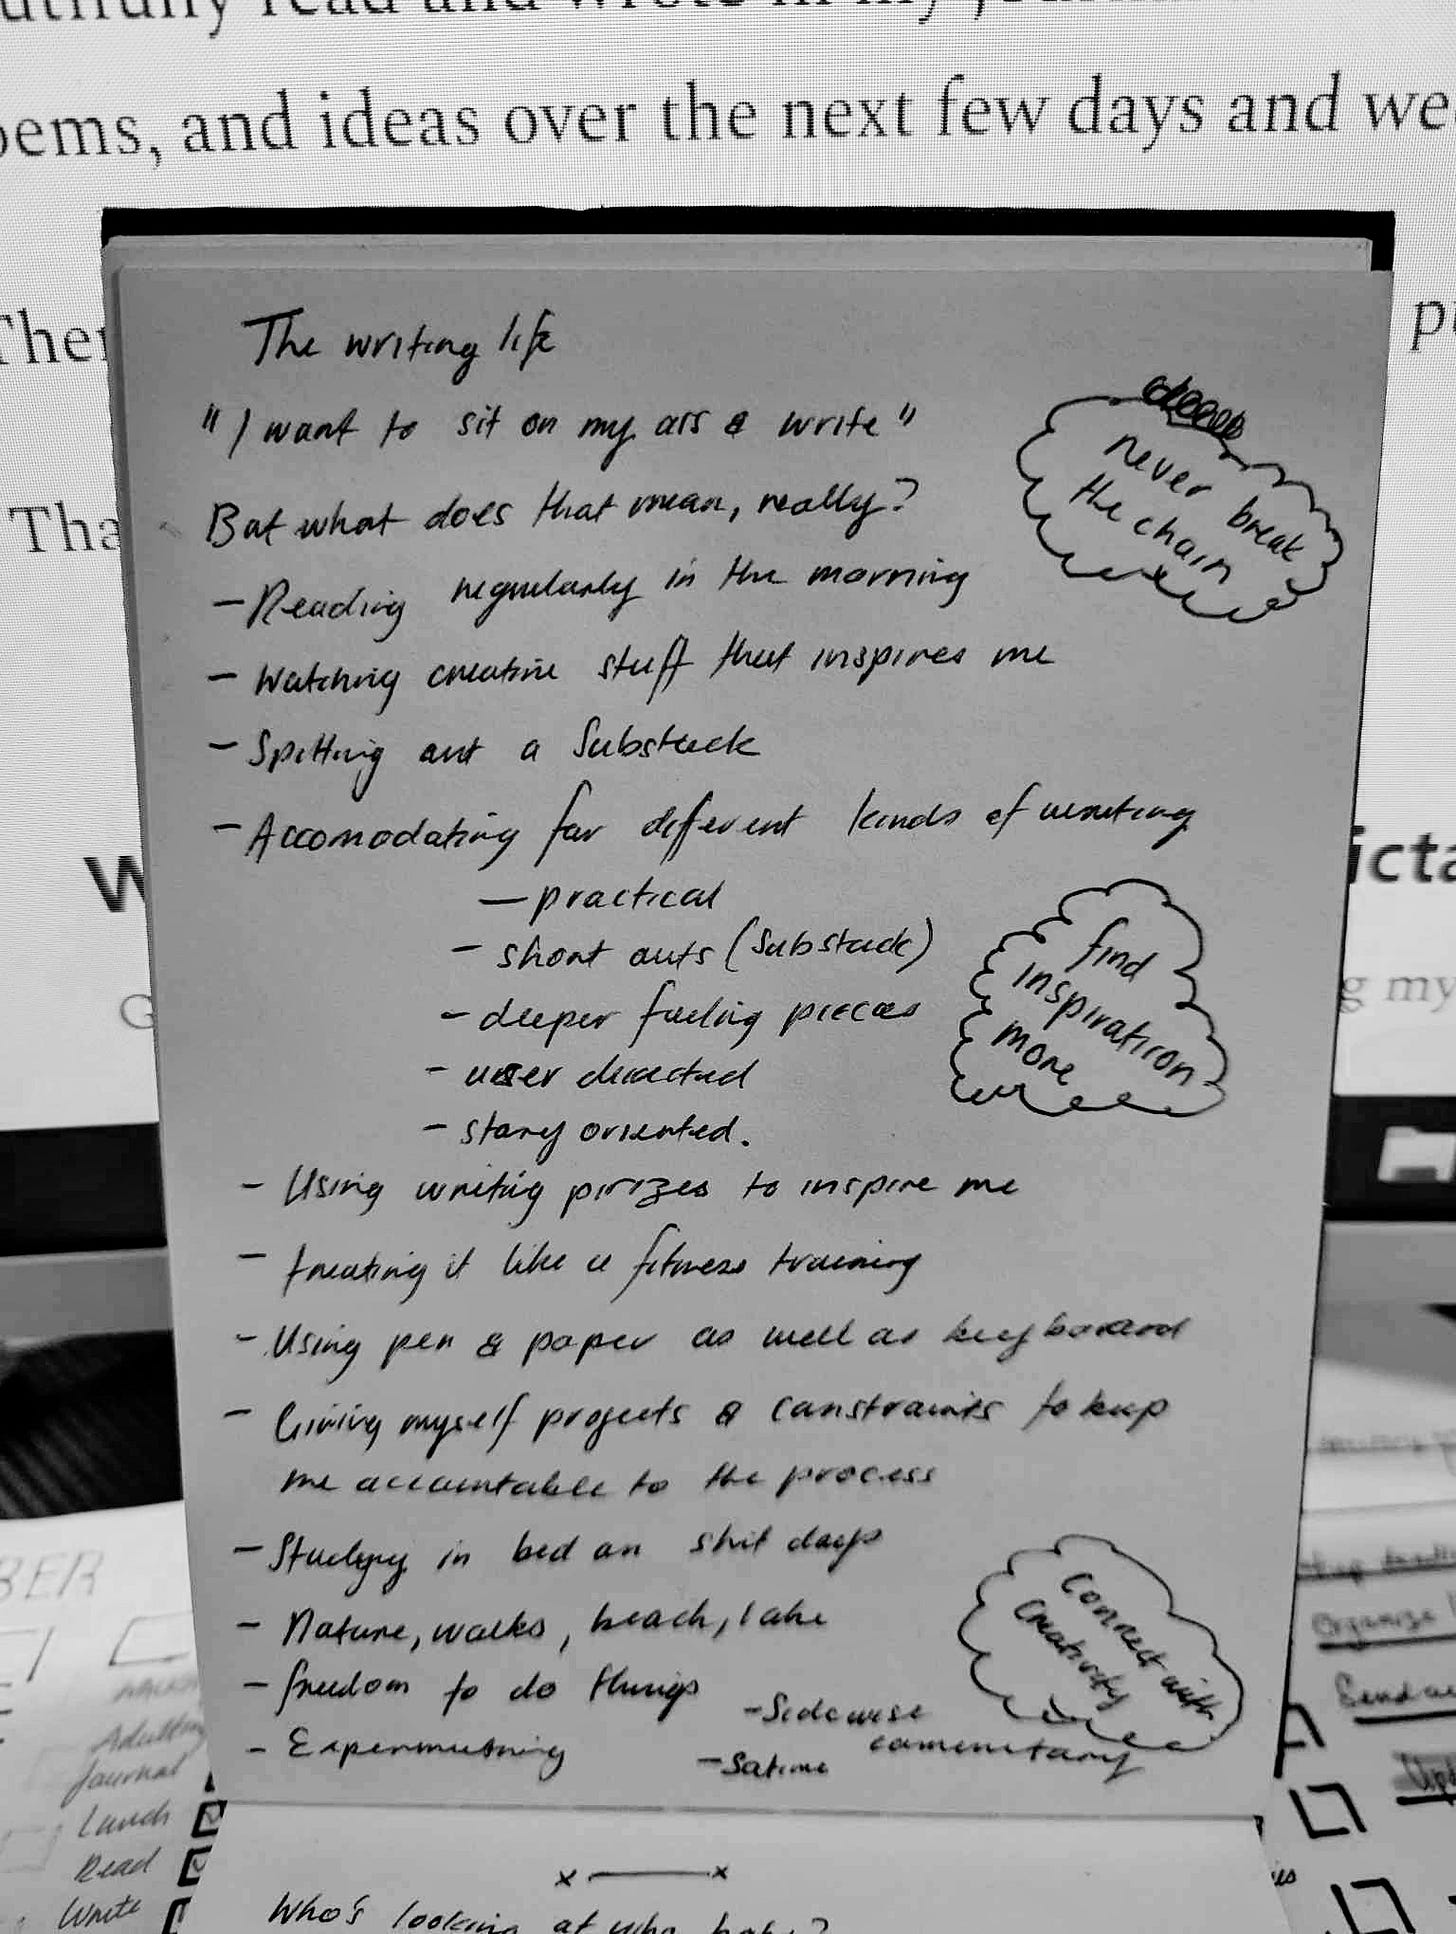 and wrote in my
oems, and ideas over the next few days and we
Ther
Tha
The writing life
"I want to sit on my ass & write"
But what does that mean, really?
never break
the chain
- Reading regularly in the morning
- Watching creative stuff that inspires me
- Spitting out a Substack
- Accomodating for different kinds of writing
- practical
- short outs (Substack)
- deeper feeling pieces
- user directed
- story oriented.
find
inspiration
more
- Using writing prizes to inspire me
- treating it like a fitness training
- Using pen & paper as well as keyboard
- Giving myself projects & constraints to keep
me accountable to the process
- Studying in bed on shit days
- Nature, walks, beach, lake
- freedom to do things
- Experimenting
- Sidewise
commentary
- Satire
Connect with
creativity
x — x
Who's looking at who, baby?
BER
Adulting
Journal
Lunch
Read
Write
icta
g my
Organize